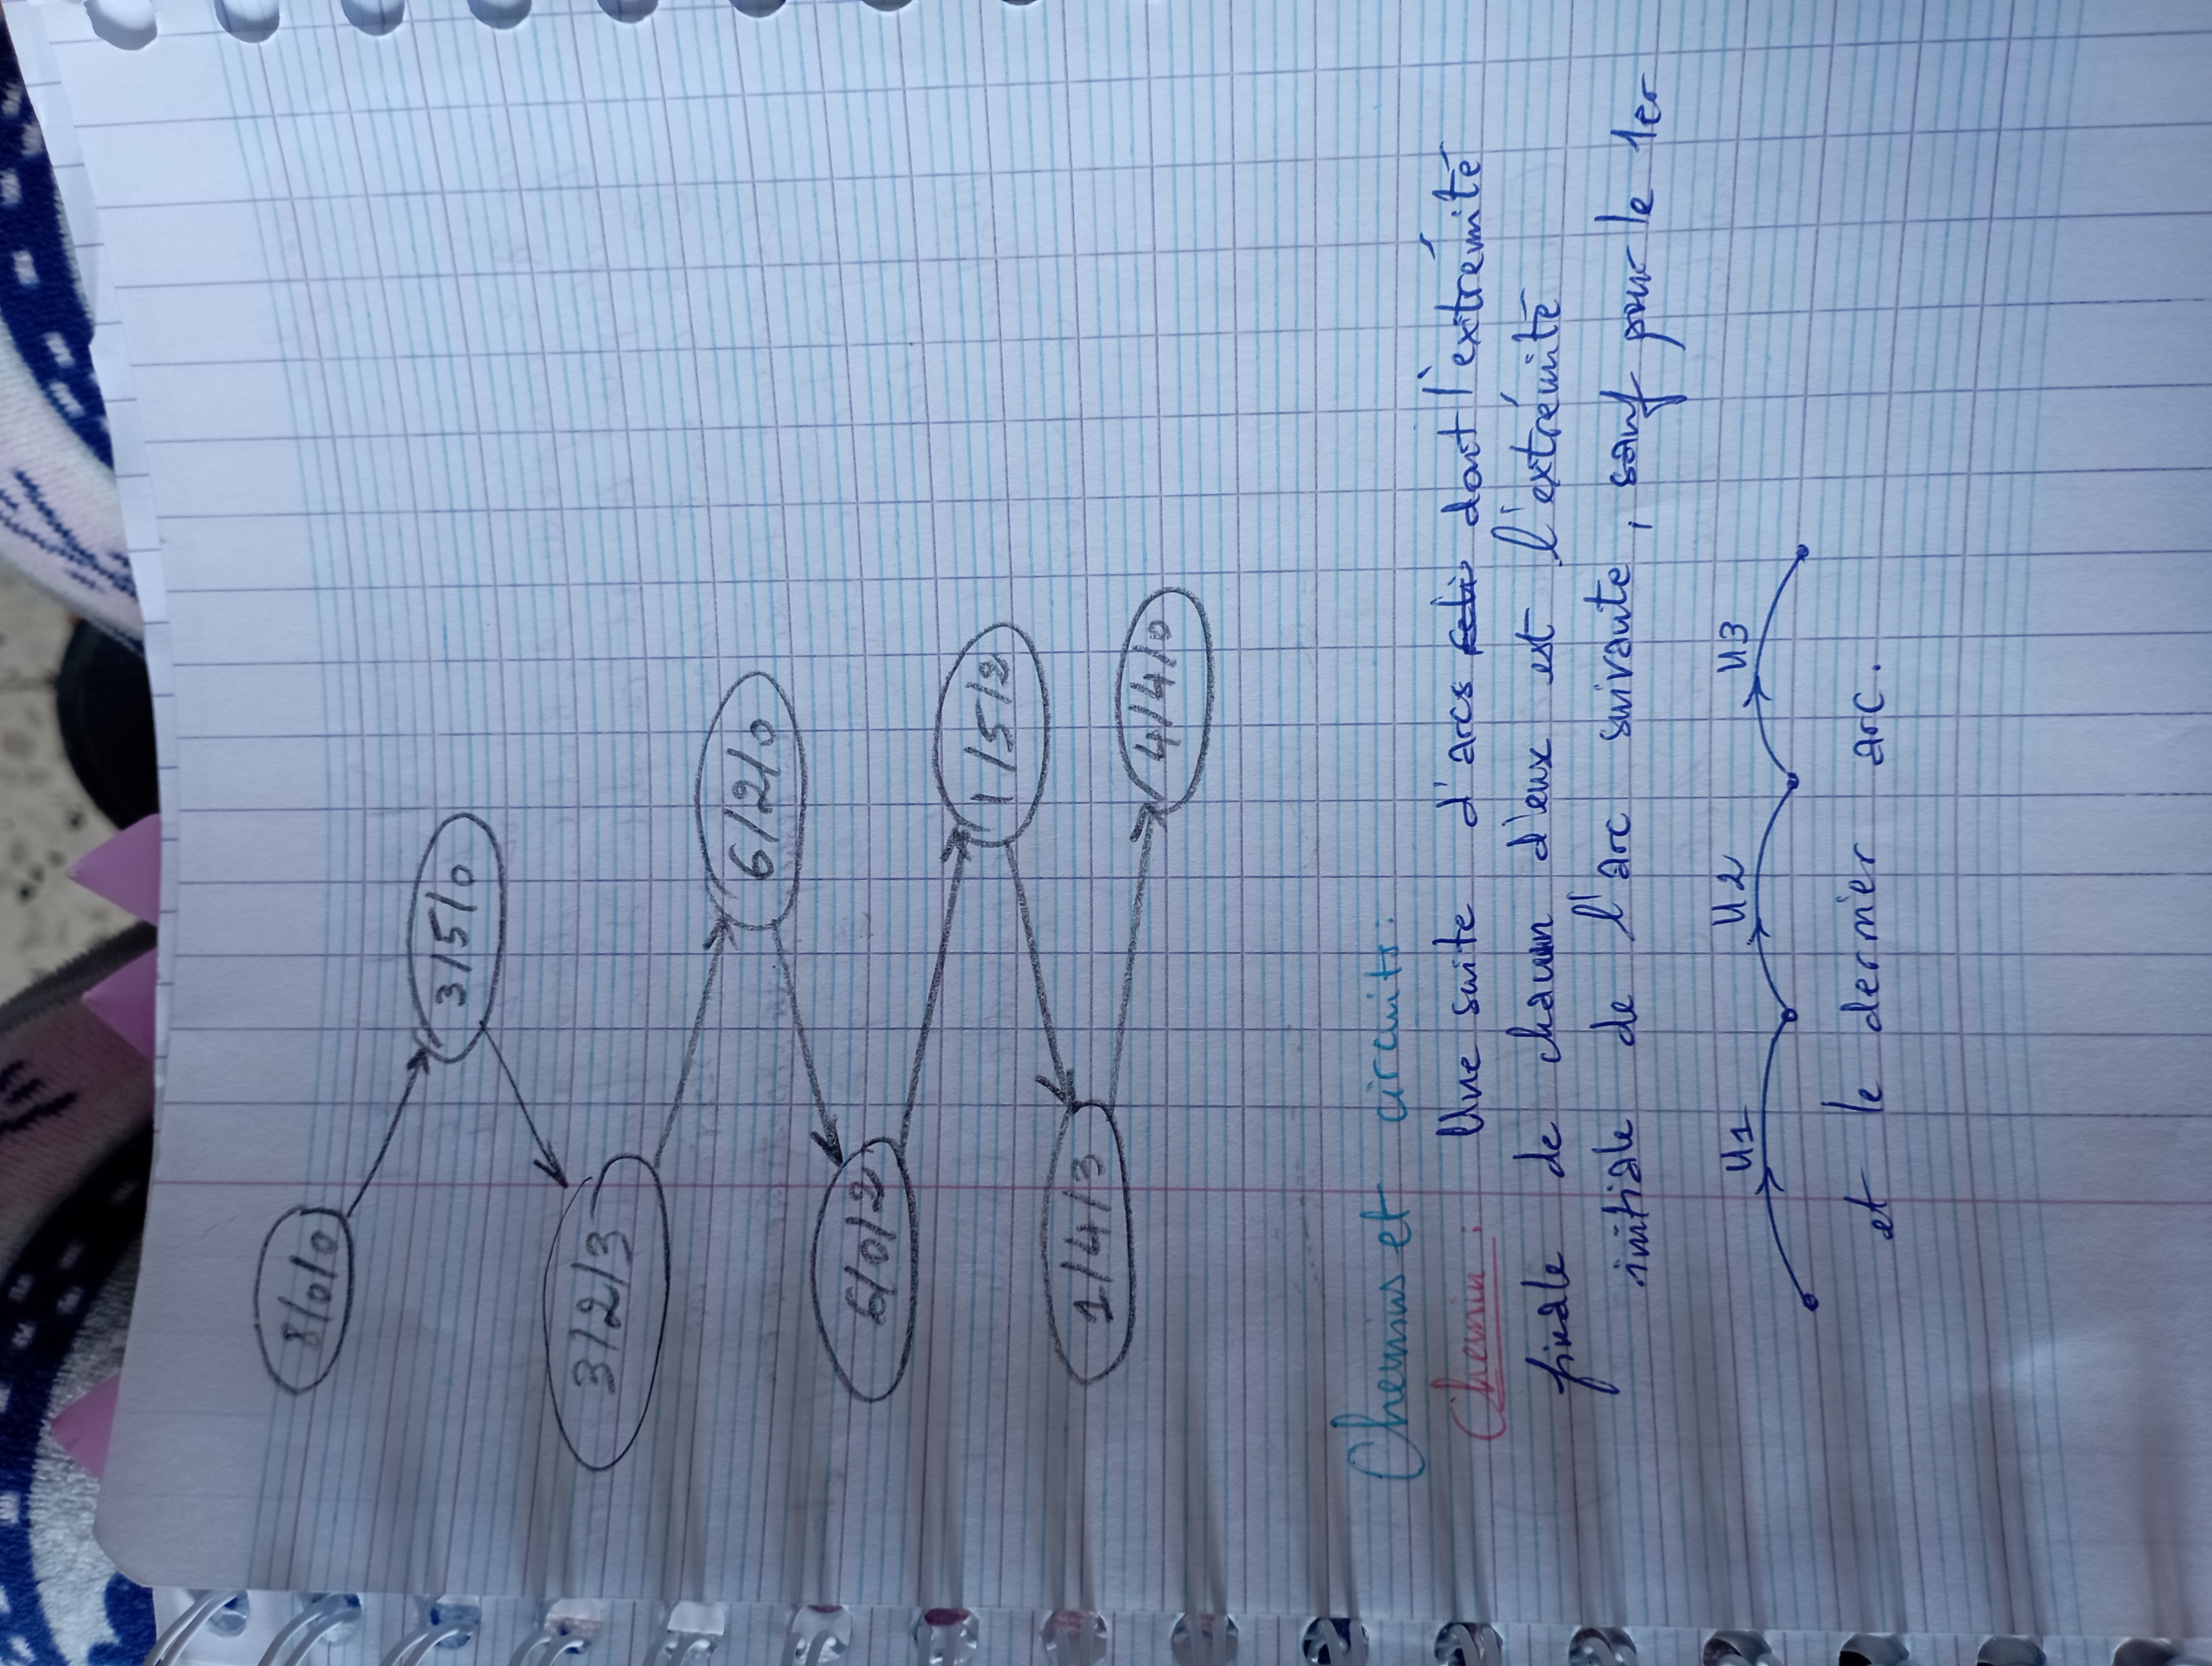 8/0/0
3/5/0
3/2/3
6/2/0
6/0/2
1/5/2
1/4/3
4/4/0
Chemins et circuits:
Chemin : Une suite d'arcs dont l'extrémité
finale de chacun d'eux est l'extrémité
initiale de l'arc suivante, sauf pour le 1er
U1 U2 U3
et le dernier arc.